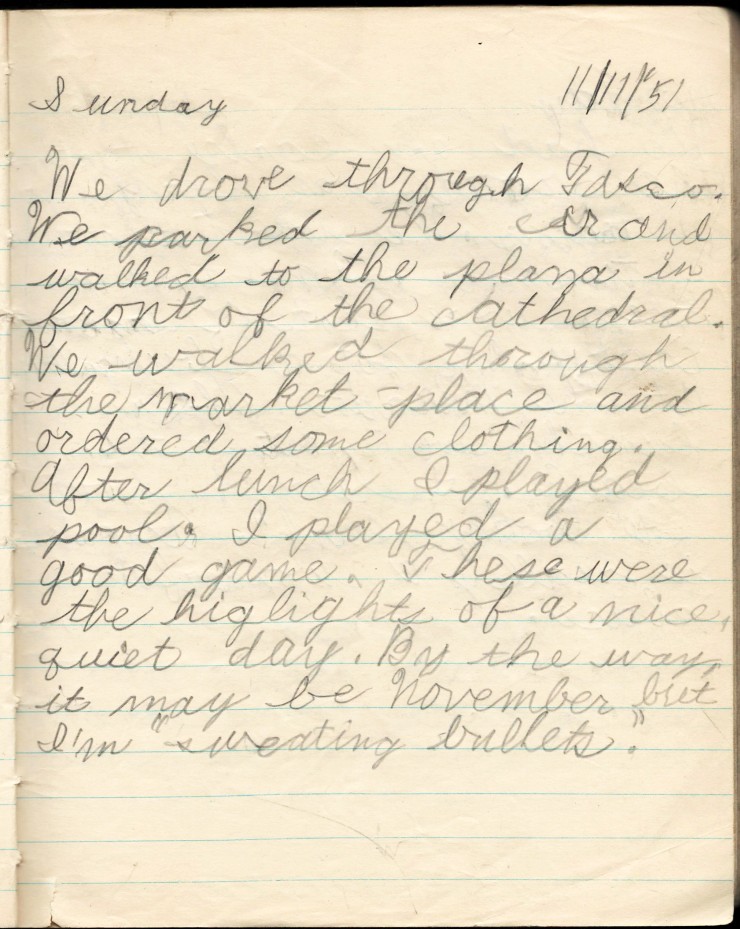 Sunday 11/11/'51
We drove through Tasco.
We parked the car and
walked to the plaza in
front of the cathedral.
We walked through
the market-place and
ordered some clothing.
After lunch I played
pool. I played a
good game. These were
the higlights of a nice,
quiet day. By the way,
it may be November but
I'm "sweating bullets."